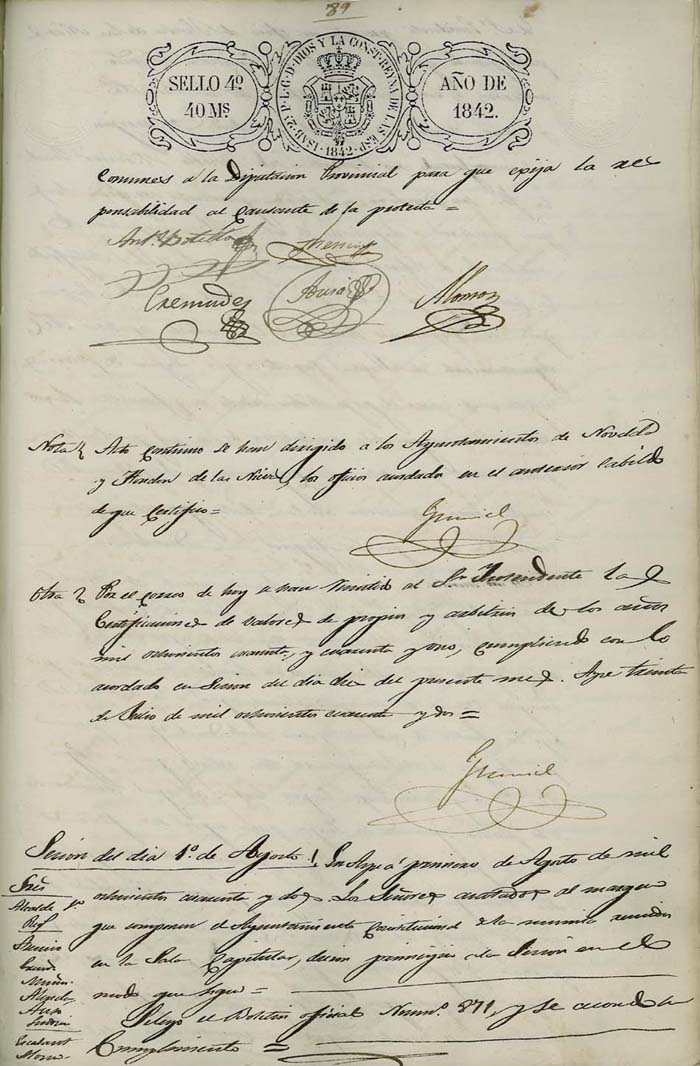 89
SELLO 4º
40 Ms.
ISAB. 2ª P. L. G. D. DIOS Y LA CONST. REYNA DE LAS ESP. 1842.
AÑO DE
1842.
Comunes a la Diputacion Provincial para que epija la res
ponsabilidad al Causante de la protesta =
Antº Botella
Cremades
Alonso
Nota Acto continuo se han dirigido a los Ayuntamientos de Novelda
y Hondon de las Nieves, los oficios acordados en el anterior Cabildo
de que Certifico =
Otra Por el correo de hoy se han remitido al Sr. Intendente las
Certificaciones de valores de propios y arbitrios de los años
mil ochocientos cuarenta, y cuarenta y uno, cumpliendo con lo
acordado en Sesion del dia diez del presente mes. Aspe treinta
de Julio de mil ochocientos cuarenta y dos =
Sesion del dia 1º de Agosto. En Aspe á primero de Agosto de mil
Sres.
ochocientos cuarenta y dos Los Señores anotados al margen
Alcalde 1º
que componen el Ayuntamiento Constitucional de la misma reunidos
en la Sala Capitular, dieron principio a la Sesion en el
modo que sigue
Se leyo el Boletin oficial Num.º 871, y se acordo su
Cumplimiento =